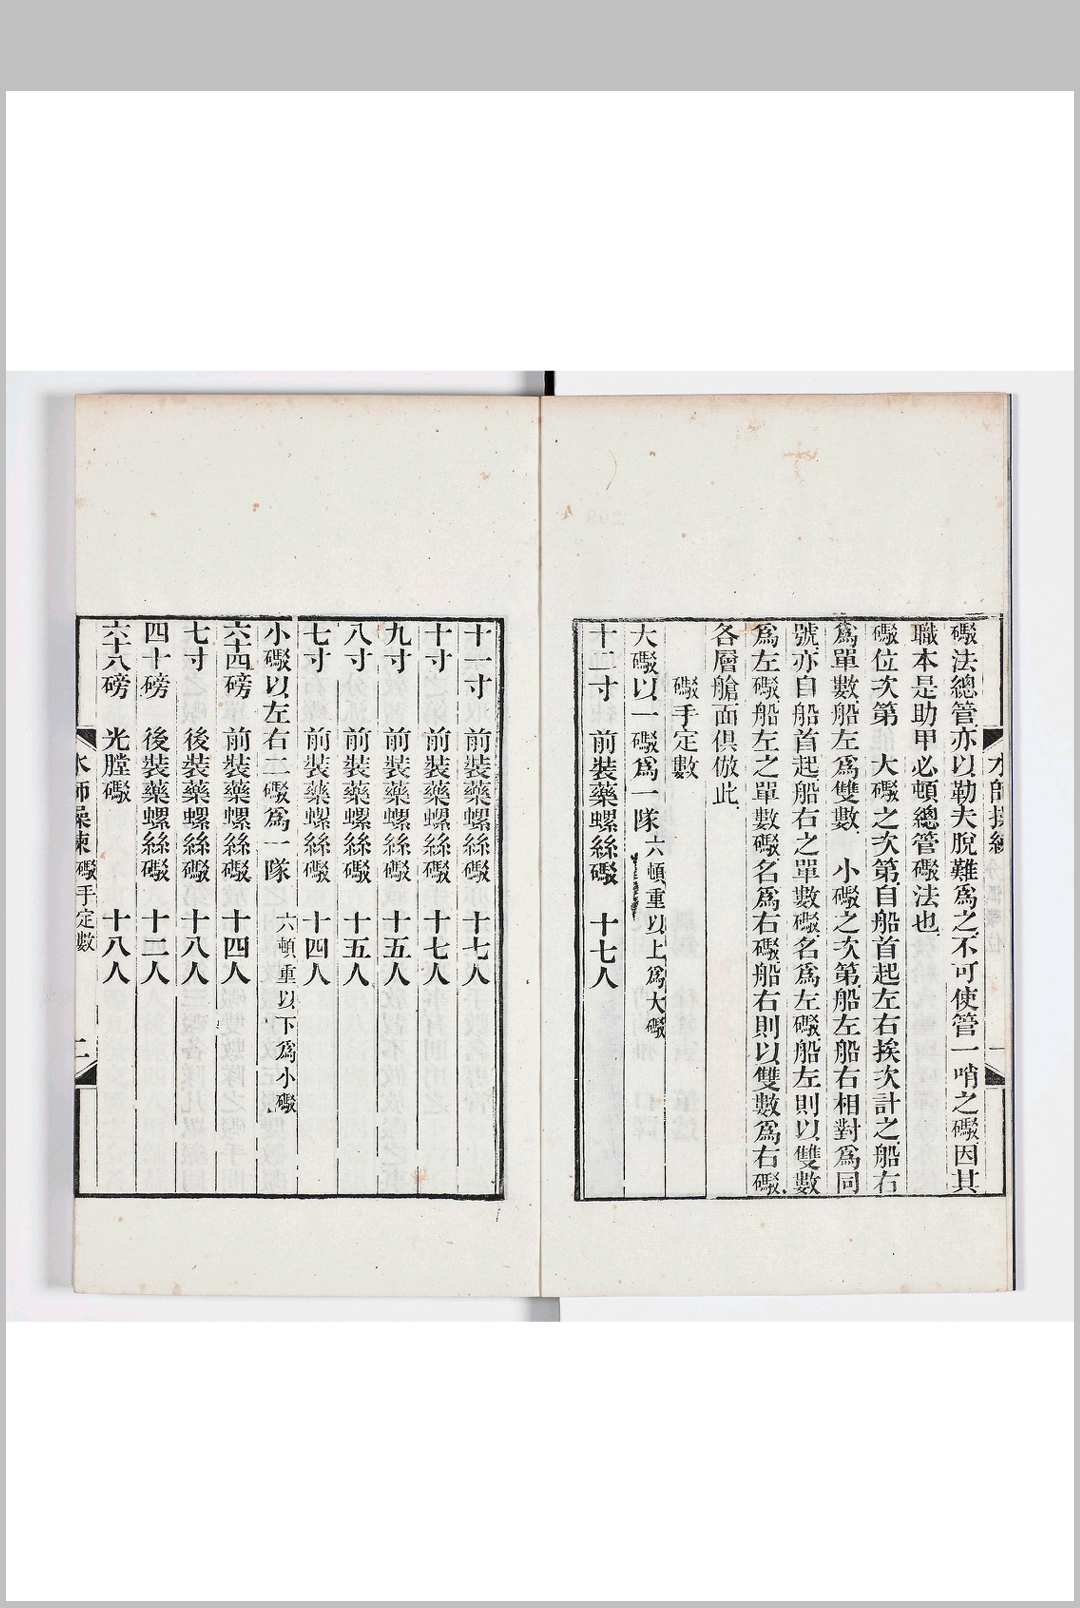 水師操練
一
礮法總管亦以勒夫脫難爲之不可使管一哨之礮因其
職本是助甲必頓總管礮法也
礮位次第 大礮之次第自船首起左右挨次計之船右
爲單數船左爲雙數 小礮之次第船左船右相對爲同
號亦自船首起船右之單數礮名爲左礮船左則以雙數
爲左礮船左之單數礮名爲右礮船右則以雙數爲右礮
各層艙面俱倣此
礮手定數
大礮以一礮爲一隊六頓重以上爲大礮
十二寸 前裝藥螺絲礮 十七人
十一寸 前裝藥螺絲礮 十七人
十寸 前裝藥螺絲礮 十七人
九寸 前裝藥螺絲礮 十五人
八寸 前裝藥螺絲礮 十五人
七寸 前裝藥螺絲礮 十四人
小礮以左右二礮爲一隊 六頓重以下爲小礮
六十四磅 前裝藥螺絲礮 十四人
七寸 後裝藥螺絲礮 十八人
四十磅 後裝藥螺絲礮 十二人
六十八磅 光膛礮 十八人
水師操練 礮手定數 二